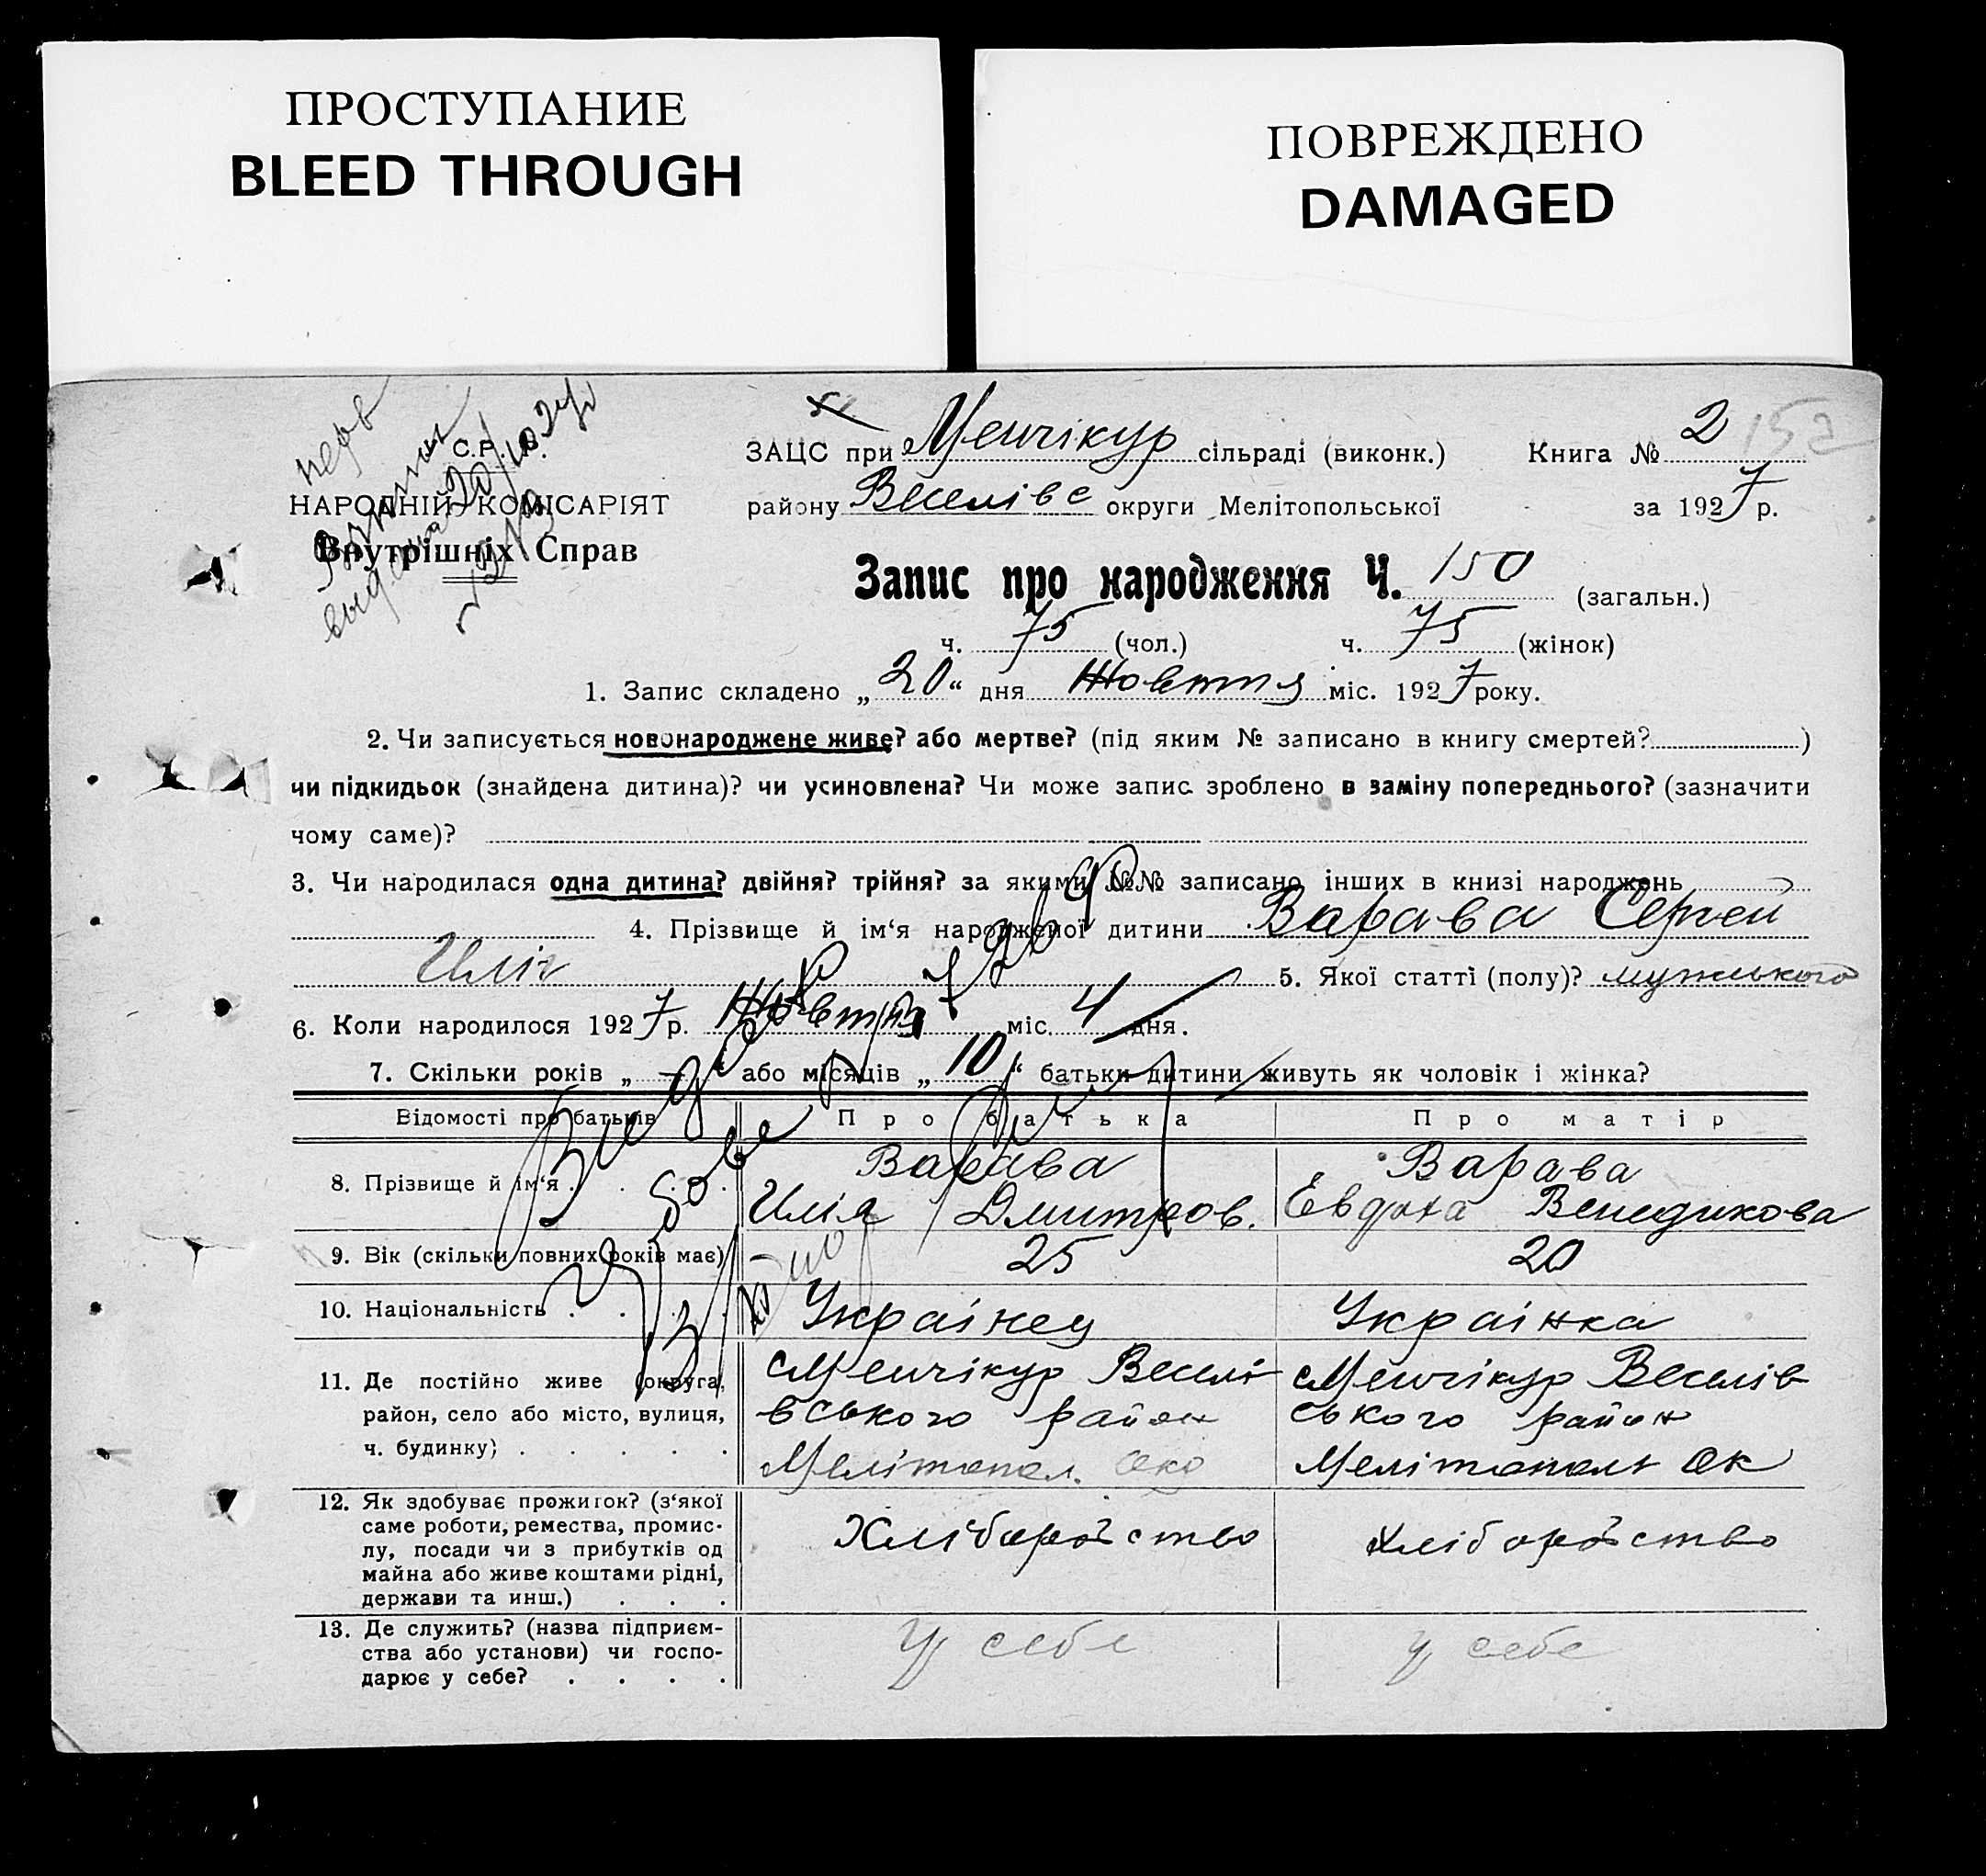 ПРОСТУПАНИЕ
BLEED THROUGH
ПОВРЕЖДЕНО
DAMAGED
С.Р.
НАРОДНІЙ КОМІСАРІЯТ
Внутрішніх Справ
ЗАЦС при Менчікур сільраді (виконк.) Книга № 2 152
району Веселівс округи Мелітопольської за 1927 р.
Запис про народження Ч. 150 (загальн.)
ч. 75 (чол.) ч. 75 (жінок)
1. Запис складено „20“ дня Жовтня міс. 1927 року.
2. Чи записується новонароджене живе? або мертве? (під яким № записано в книгу смертей? )
чи підкидьок (знайдена дитина)? чи усиновлена? Чи може запис зроблено в заміну попереднього? (зазначити
чому саме)?
3. Чи народилася одна дитина? двійня? трійня? за якими №№ записано інших в книзі народжень
4. Прізвище й ім‘я народженої дитини Варава Сергей
Иліч 5. Якої статті (полу)? мужського
6. Коли народилося 1927 р. Жовтня міс. 4 дня.
7. Скільки років „—“ або місяців „10“ батьки дитини живуть як чоловік і жінка?
Відомості про батьків Про батька Про матір
8. Прізвище й ім‘я . . . . Варава Варава
Илія Дмитров. Евдоха Венедикова
9. Вік (скільки повних років має) 25 20
10. Національність . . . . Украінец Украінка
11. Де постійно живе (округа, Менчікур Веселі Менчікур Веселів
район, село або місто, вулиця, вського район ського район
ч. будинку) . . . . . Мелітопол. Око Мелітополь Ок
12. Як здобуває прожиток? (з‘якої
саме роботи, ремества, промис-
лу, посади чи з прибутків од Хліборобство хліборобство
майна або живе коштами рідні,
держави та инш.) . . .
13. Де служить? (назва підприєм-
ства або установи) чи госпо- У себе у себе
дарює у себе? . . . .